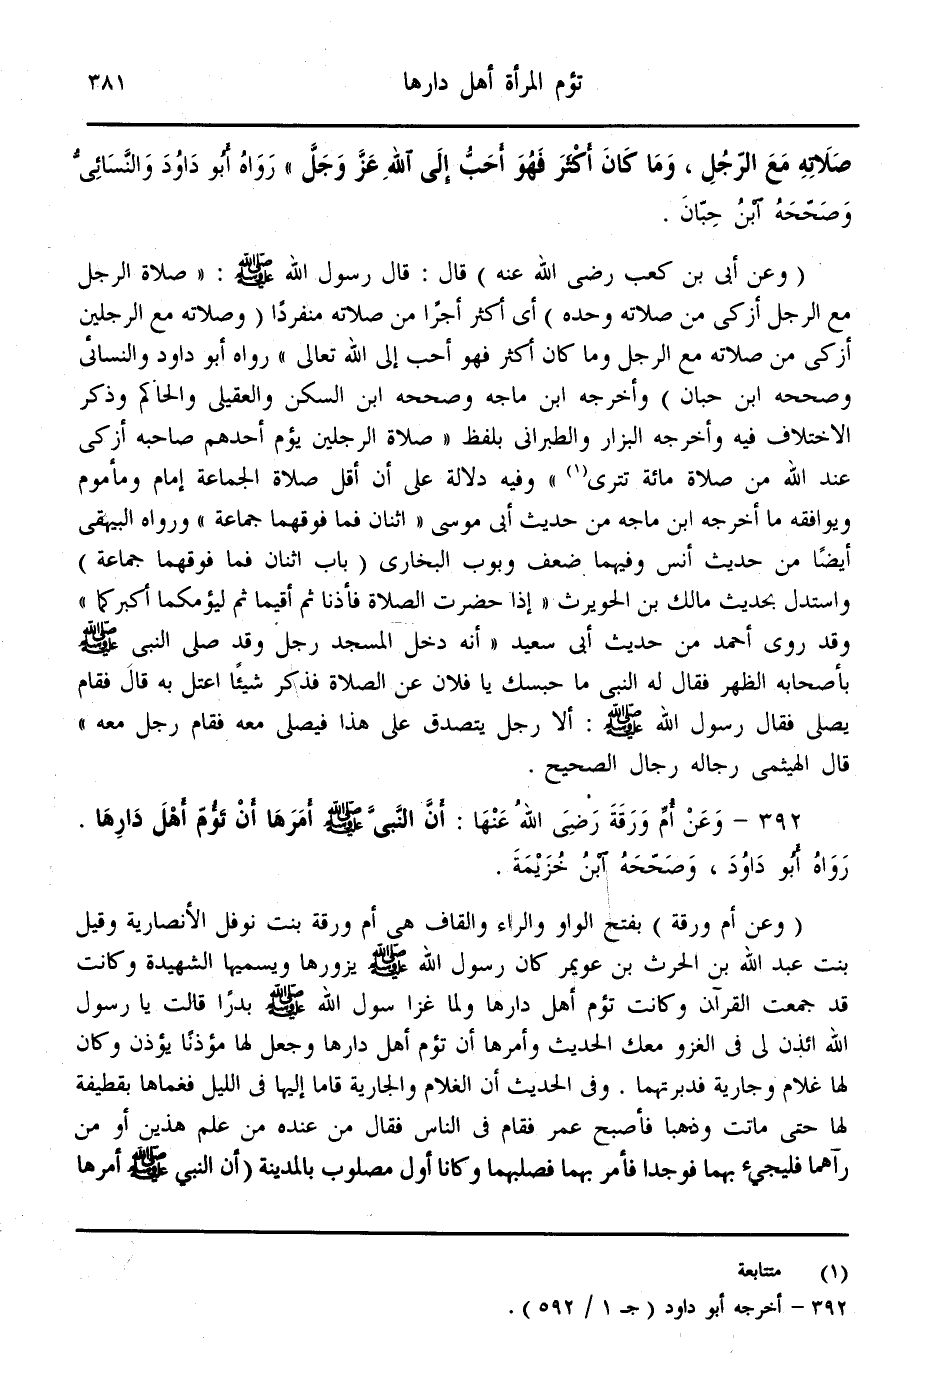 تؤم المرأة أهل دارها ٣٨١
صَلَاتِهِ مَعَ الرَّجُلِ ، وَمَا كَانَ أَكْثَرَ فَهُوَ أَحَبُّ إِلَى اللهِ عَزَّ وَجَلَّ » رَوَاهُ أَبُو دَاوُدَ وَالنَّسَائِىُّ
وَصَحَّحَهُ ابْنُ حِبَّانَ .
( وعن أبى بن كعب رضى الله عنه ) قال : قال رسول الله ﷺ : « صلاة الرجل
مع الرجل أزكى من صلاته وحده ) أى أكثر أجرًا من صلاته منفردًا ( وصلاته مع الرجلين
أزكى من صلاته مع الرجل وما كان أكثر فهو أحب إلى الله تعالى » رواه أبو داود والنسائى
وصححه ابن حبان ) وأخرجه ابن ماجه وصححه ابن السكن والعقيلى والحاكم وذكر
الاختلاف فيه وأخرجه البزار والطبرانى بلفظ « صلاة الرجلين يؤم أحدهم صاحبه أزكى
عند الله من صلاة مائة تترى(١) » وفيه دلالة على أن أقل صلاة الجماعة إمام ومأموم
ويوافقه ما أخرجه ابن ماجه من حديث أبى موسى « اثنان فما فوقهما جماعة » ورواه البيهقى
أيضًا من حديث أنس وفيهما ضعف وبوب البخارى ( باب اثنان فما فوقهما جماعة )
واستدل بحديث مالك بن الحويرث « إذا حضرت الصلاة فأذنا ثم أقيما ثم ليؤمكما أكبركما »
وقد روى أحمد من حديث أبى سعيد « أنه دخل المسجد رجل وقد صلى النبى ﷺ
بأصحابه الظهر فقال له النبى ما حبسك يا فلان عن الصلاة فذكر شيئًا اعتل به قال فقام
يصلى فقال رسول الله ﷺ : ألا رجل يتصدق على هذا فيصلى معه فقام رجل معه »
قال الهيثمى رجاله رجال الصحيح .
٣٩٢ – وَعَنْ أُمِّ وَرَقَةَ رَضِىَ اللهُ عَنْهَا : أَنَّ النَّبِىَّ ﷺ أَمَرَهَا أَنْ تَؤُمَّ أَهْلَ دَارِهَا .
رَوَاهُ أَبُو دَاوُدَ ، وَصَحَّحَهُ ابْنُ خُزَيْمَةَ .
( وعن أم ورقة ) بفتح الواو والراء والقاف هى أم ورقة بنت نوفل الأنصارية وقيل
بنت عبد الله بن الحرث بن عويمر كان رسول الله ﷺ يزورها ويسميها الشهيدة وكانت
قد جمعت القرآن وكانت تؤم أهل دارها ولما غزا سول الله ﷺ بدرًا قالت يا رسول
الله ائذن لى فى الغزو معك الحديث وأمرها أن تؤم أهل دارها وجعل لها مؤذنًا يؤذن وكان
لها غلام وجارية فدبرتهما . وفى الحديث أن الغلام والجارية قاما إليها فى الليل فغماها بقطيفة
لها حتى ماتت وذهبا فأصبح عمر فقام فى الناس فقال من عنده من علم هذين أو من
رآهما فليجيء بهما فوجدا فأمر بهما فصلبهما وكانا أول مصلوب بالمدينة ( أن النبي ﷺ أمرها
(١) متتابعة
٣٩٢ – أخرجه أبو داود ( جـ ١ / ٥٩٢ ) .